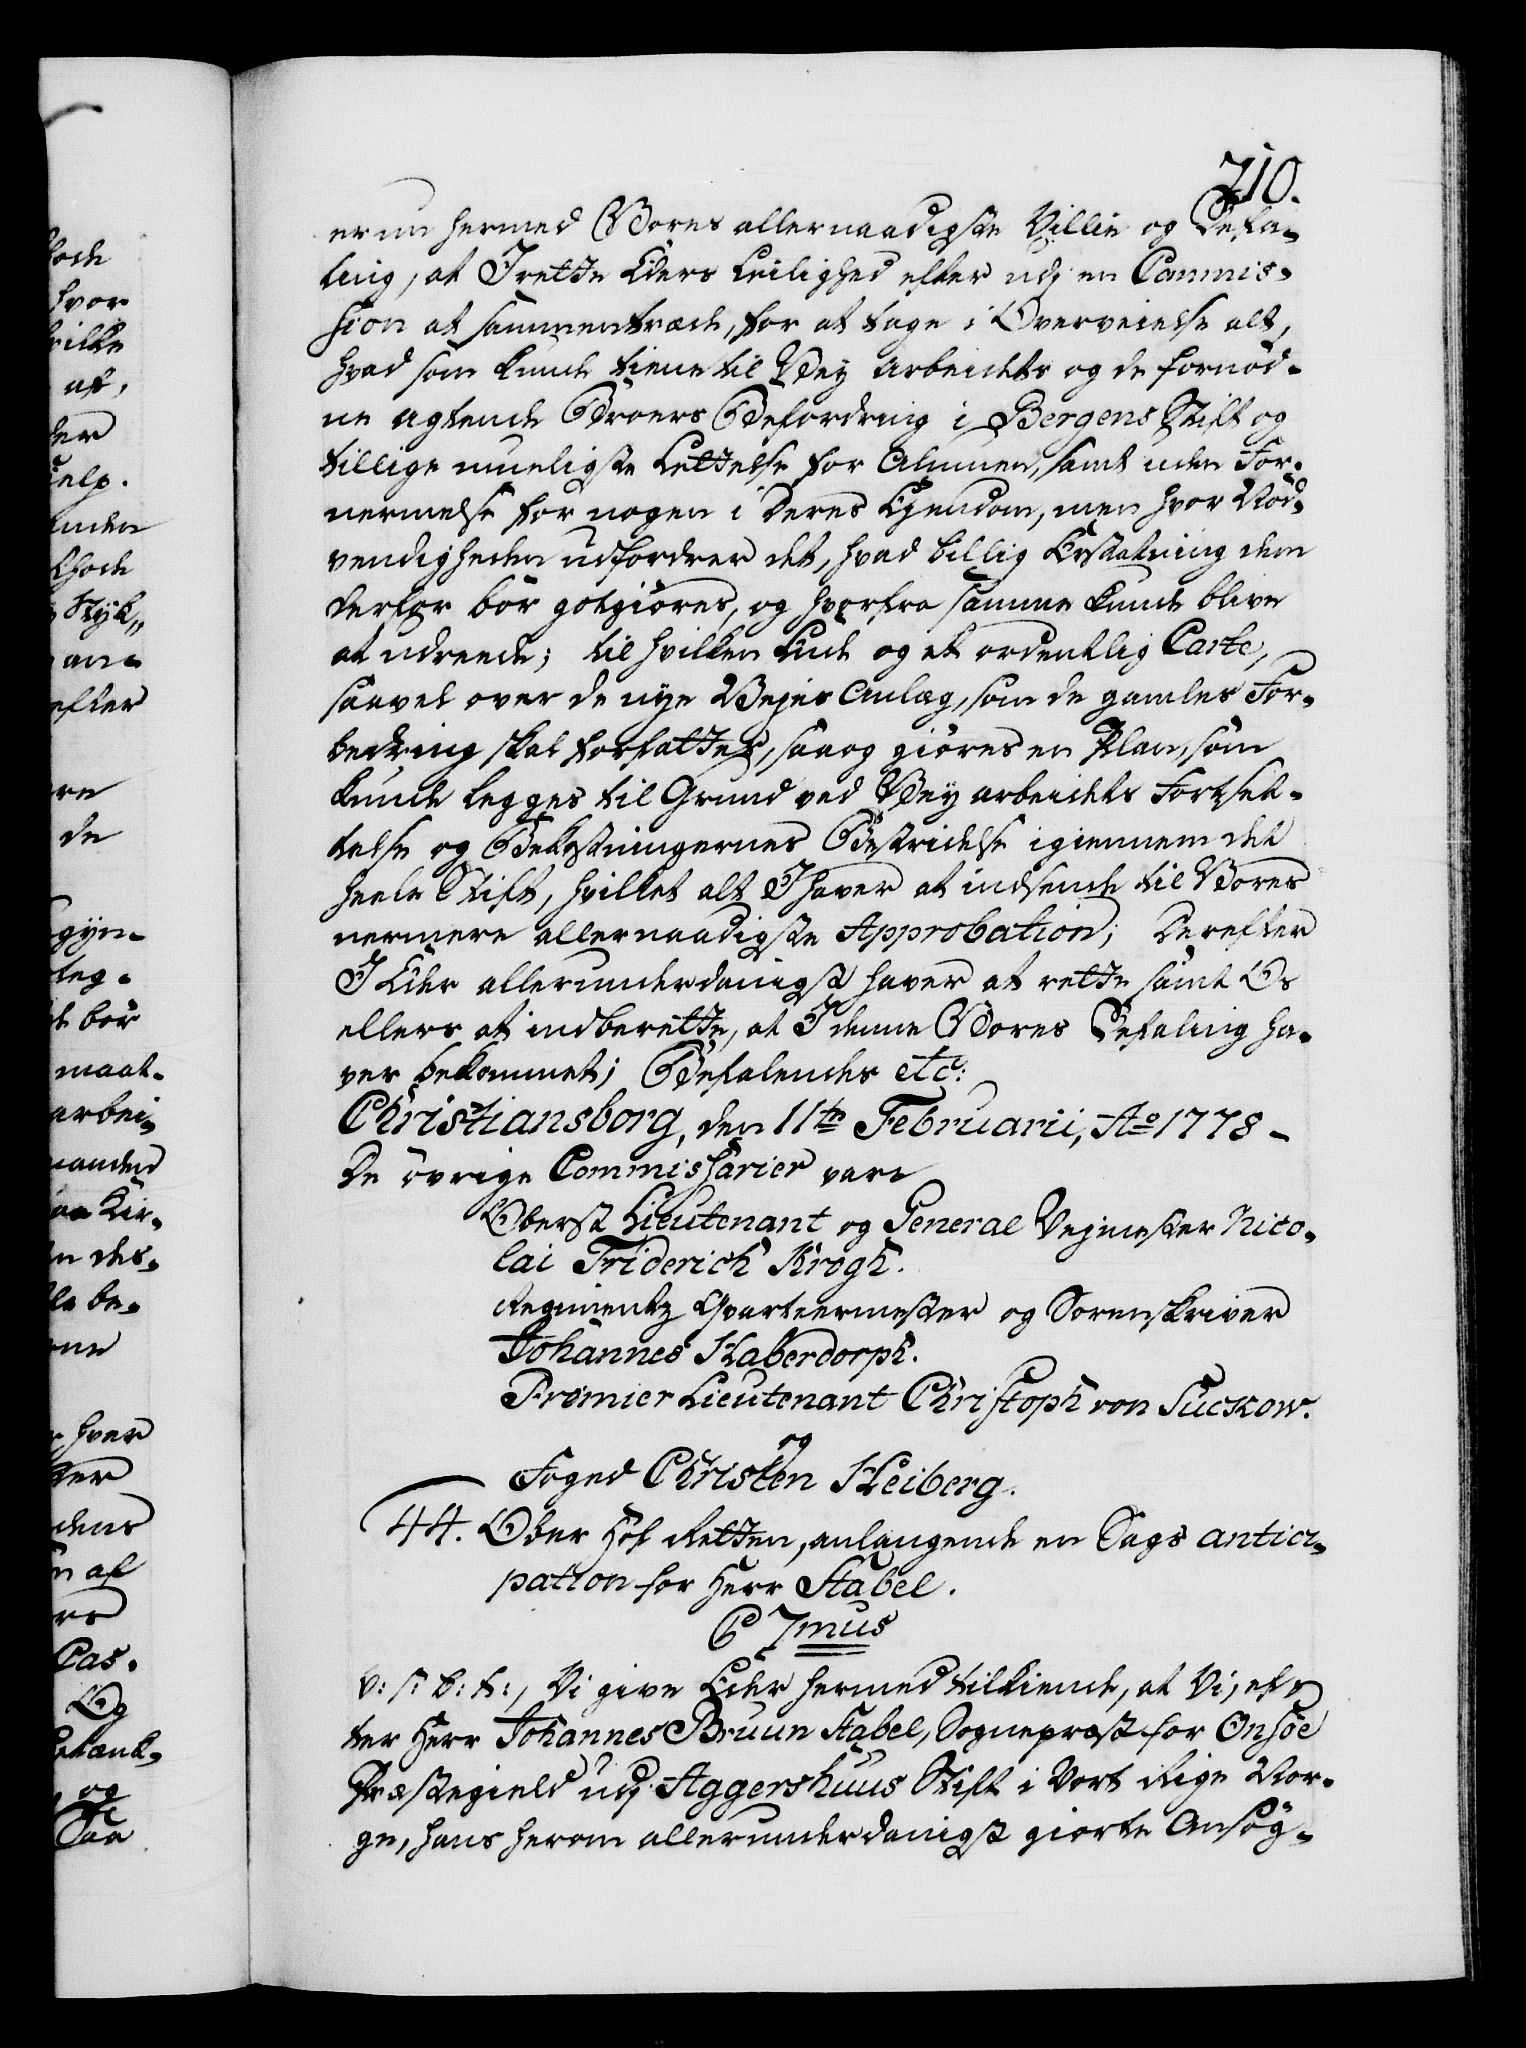 710.
er nu hermed Vores allernaadigste Villie og Befa-
ling, at I rette Eders Leilighed efter udj en Commis-
sion at sammentræde, for at tage i Overveielse alt,
hvad som kunde tiene til Vey Arbeidets og de fornød-
ne agtende Broers Befordring i Bergens Stift og
tillige mueligste Lettelse for Almuen, samt uden For-
nermelse for nogen i deres Ejendom, men hvor Nød-
vendigheden udfordrer det, hvad billig Erstatning dem
derfor bør godtgiøres, og hvorfra samme kunde blive
at udreede; til hvilken Ende og et ordentlig Carte,
saavel over de nye Vejes Anlæg, som de gamles For-
bedring skal forfattes, saa og giøres en Plan, som
kunde legges til Grund ved Vey arbeidets Fortset-
telse og Bekostningernes Bestridelse igiennem det
heele Stift, hvilket alt I haver at indsende til Vores
nermere allernaadigste Approbation; Derefter
I Eder allerunderdanigst haver at rette samt Os
ellers at indberette, at I denne Vores Befaling ha-
ver bekommet; Befalendes etc:
Christiansborg, den 11te Februarii, Ao 1778 -
De øvrige Commissarier vare
Oberst Lieutenant og General Vejmester Nico-
lai Friderich Krogh.
Regiments Qvarteermester og Sorenskriver
Johannes Haberdorph.
Premier Lieutenant Christoph von Suckow.
og
Foged Christen Heiberg.
44. Ober Hof Retten, anlangende en Sags antici-
pation for Herr Stabel.
C 7mus
V: S: B: T:, Vi give Eder hermed tilkiende, at Vi, ef-
ter Herr Johannes Bruun Stabel, Sognepræst for Onsøe
Præstegield udj Aggershuus Stift i Vort Rige Nor-
ge, hans herom allerunderdanigst giorte Ansøg-